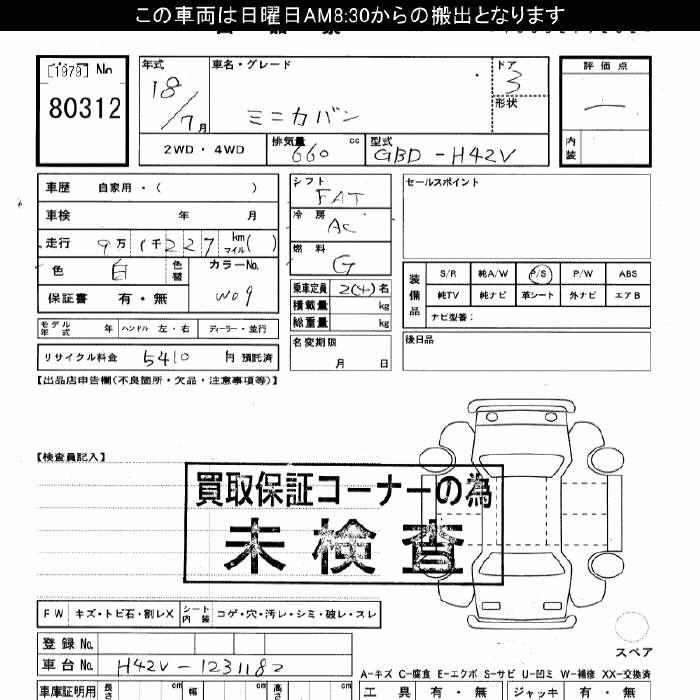 この車両は日曜日AM8:30からの搬出となります
[1979] No
80312
年式 18/7月
車名・グレード
ミニカバン
ドア 3
形状
評価点
ー
内装
2WD・4WD
排気量 660 cc
型式 GBD-H42V
車歴 自家用・( )
車検 年 月
走行 9万1千227 km マイル( )
色 白 色替 カラーNo. W09
保証書 有・無
モデル年式 年 ハンドル 左・右 ディーラー・並行
リサイクル料金 5410 円 預託済
シフト FAT
冷房 AC
燃料 G
乗車定員 2(4)名
積載量 kg
総重量 kg
名変期限
月 日
セールスポイント
装備品
S/R 純A/W P/S P/W ABS
純TV 純ナビ 革シート 外ナビ エアB
ナビ型番:
後日品
【出品店申告欄(不良箇所・欠品・注意事項等)】
【検査員記入】
買取保証コーナーの為
未検査
FW キズ・トビ石・割レX シート内装 コゲ・穴・汚レ・シミ・破レ・スレ
登録No.
車台No. H42V-1231182
スペア
A-キズ C-腐食 E-エクボ S-サビ U-凹ミ W-補修 XX-交換済
車庫証明用 長さ cm 幅 cm 高さ cm
工具 有・無 ジャッキ 有・無